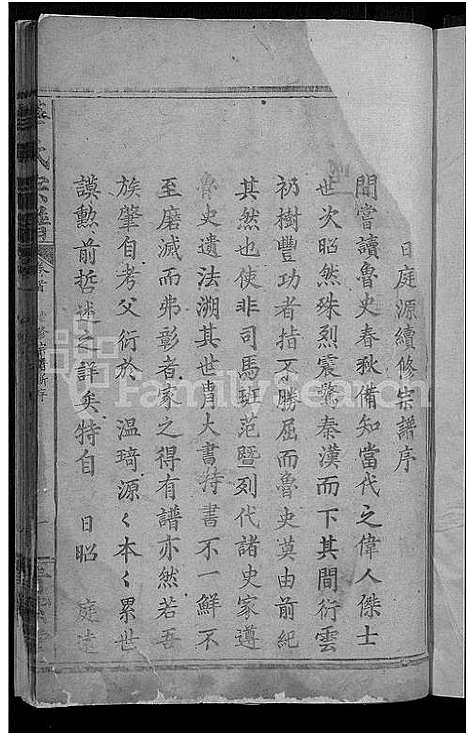 日庭源續修宗譜序
間嘗讀魯史春秋備知當代之偉人傑士
世次昭然殊烈震驚秦漢而下其間衍雲
礽樹豐功者指不勝屈而魯史莫由前紀
其然也使非司馬班范暨列代諸史家遵
魯史遺法溯其世胄大書特書不一鮮不
至磨滅而弗彰者家之得有譜亦然若吾
族肇自考父衍於溫琦源〻本〻累世
謨勲前哲述之詳矣特自 日昭 庭遠
氏宗譜
卷首
FamilySearch